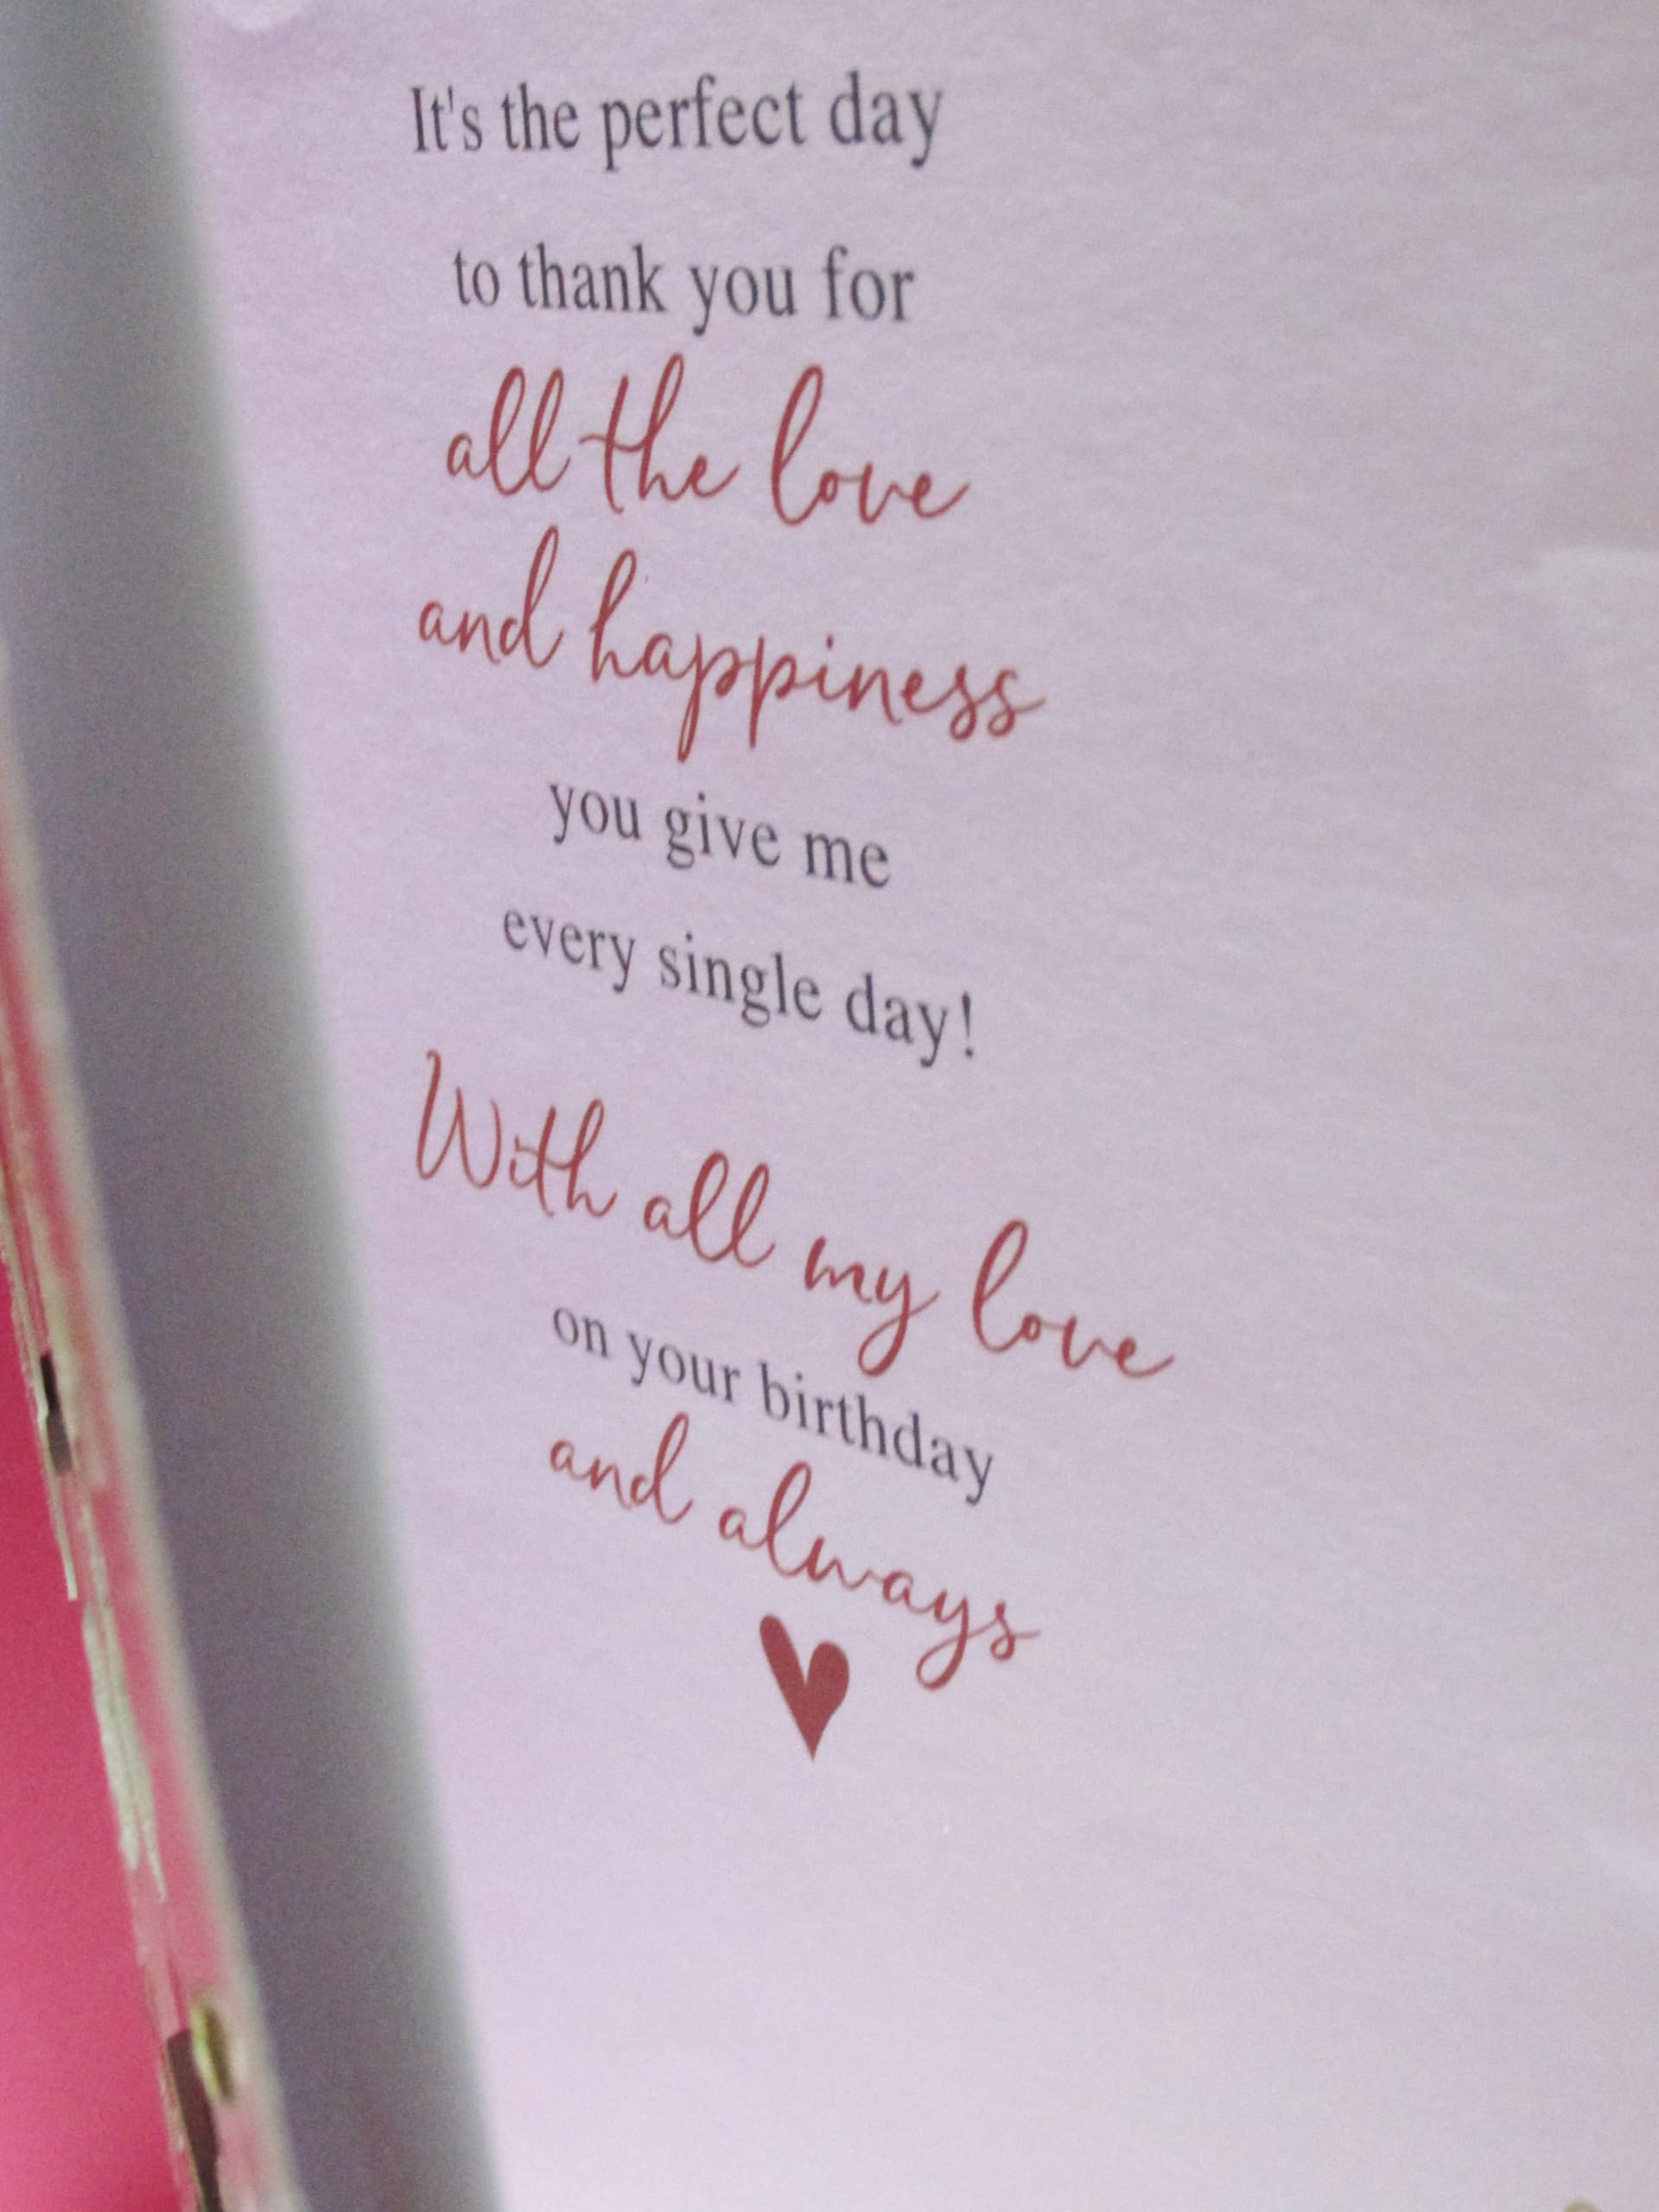 It's the perfect day
to thank you for
all the love
and happiness
you give me
every single day!
With all my love
on your birthday
and always